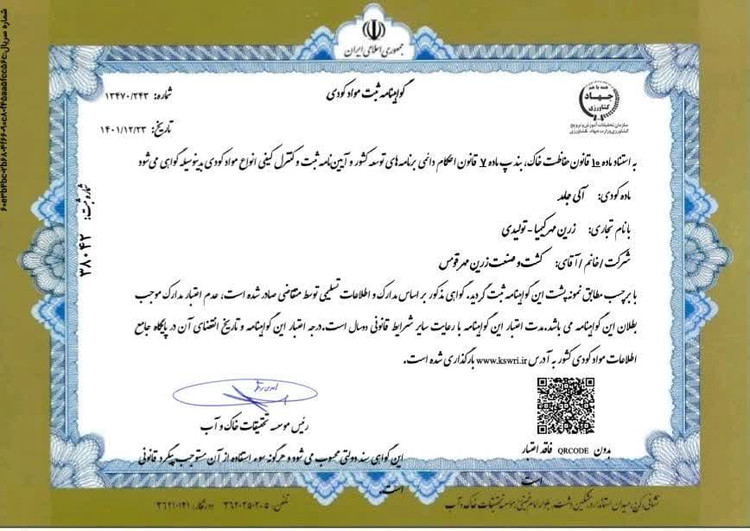 جمهوری اسلامی ایران
گواهینامه ثبت مواد کودی
شماره: ۱۳۴۷۰/۲۴۳
تاریخ: ۱۴۰۱/۱۲/۲۳
همه با هم
جهاد
کشاورزی
سازمان تحقیقات، آموزش و ترویج
کشاورزی وزارت جهاد کشاورزی
شماره ثبت:
۳۸۰۴۲
به استناد ماده ۱۰ قانون حفاظت خاک، بند پ ماده ۷ قانون احکام دائمی برنامه های توسعه کشور و آیین نامه ثبت و کنترل کیفی انواع مواد کودی بدینوسیله گواهی می شود
ماده کودی: آلی جامد
با نام تجاری: زرین مهر کیمیا - تولیدی
شرکت / خانم / آقای: کشت و صنعت زرین مهر قومس
با برچسب مطابق نمونه پشت این گواهینامه ثبت گردید. گواهی مذکور بر اساس مدارک و اطلاعات تسلیمی توسط متقاضی صادر شده است، عدم اعتبار مدارک موجب
بطلان این گواهینامه می باشد. مدت اعتبار این گواهینامه با رعایت سایر شرایط قانونی دو سال است. درجه اعتبار این گواهینامه و تاریخ انقضای آن در پایگاه جامع
اطلاعات مواد کودی کشور به آدرس www.kswri.ir بارگذاری شده است.
رئیس موسسه تحقیقات خاک و آب
بدون QRCODE فاقد اعتبار
است
این گواهی سند دولتی محسوب می شود و هرگونه سوء استفاده از آن مستوجب پیگرد قانونی
است.
تلفن: ۳۶۲۰۲۵۰۲۰۵ دورنگار: ۳۶۲۱۰۱۲۱